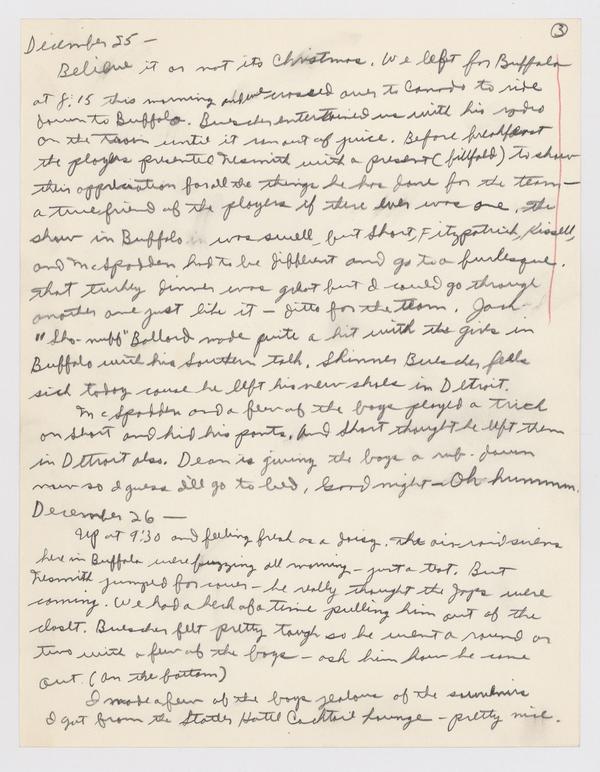 ③
December 25 —
Believe it or not its Christmas. We left for Buffalo
at 8:15 this morning and we crossed over to Canada to ride
down to Buffalo. Buescher entertained us with his radio
on the train until it ran out of juice. Before breakfast
the players presented Nesmith with a present (billfold) to show
their appreciation for all the things he has done for the team —
a true friend of the players if there ever was one. The
show in Buffalo was swell, but Short, Fitzpatrick, Kissell,
and McSpadden had to be different and go to a burlesque.
That turkey dinner was great but I could go through
another one just like it — ditto for the team. Jack
"Sho-nuff" Ballard made quite a hit with the girls in
Buffalo with his Southern talk. Skinner Buescher feels
sick today cause he left his new shoes in Detroit.
McSpadden and a few of the boys played a trick
on Short and hid his pants. And Short thought he left them
in Detroit also. Dean is giving the boys a rub-down
now so I guess I'll go to bed. Good night — Oh hummm.
December 26 —
Up at 9:30 and feeling fresh as a daisy. The air-raid sirens
here in Buffalo were buzzing all morning — just a test. But
Nesmith jumped for cover — he really thought the Japs were
coming. We had a heck of a time pulling him out of the
closet. Buescher felt pretty tough so he went a round or
two with a few of the boys — ask him how he came
out. (On the bottom)
I made a few of the boys jealous of the souvenirs
I got from the Statler Hotel Cocktail Lounge — pretty nice.